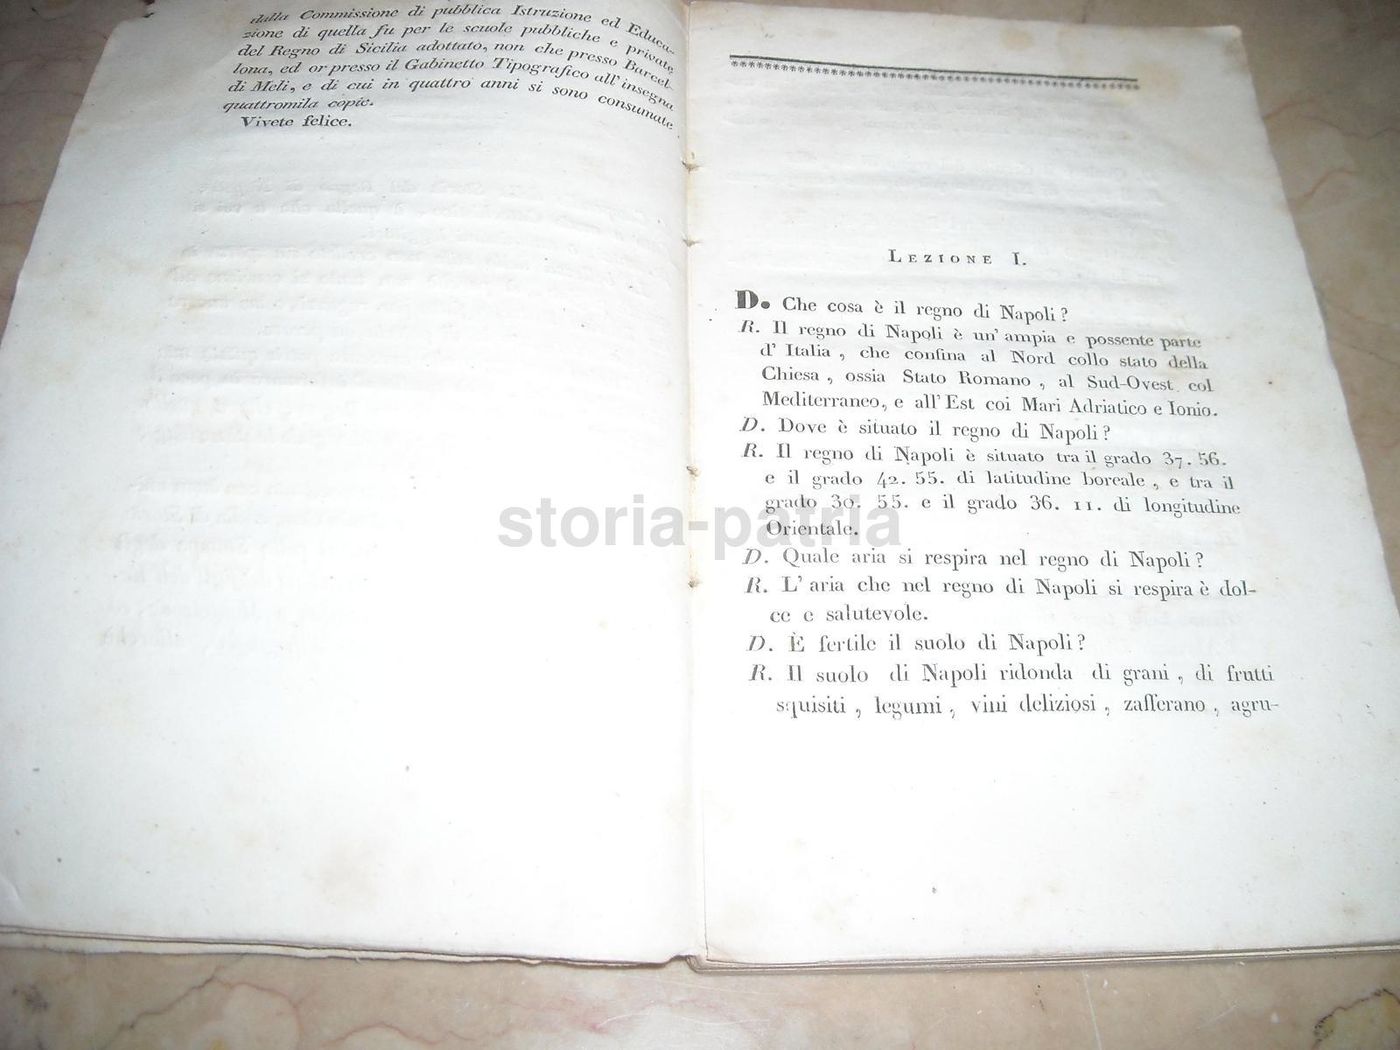 dalla Commissione di pubblica Istruzione ed Educa-
zione di quella fu per le scuole pubbliche e private
del Regno di Sicilia adottato, non che presso Barcel-
lona, ed or presso il Gabinetto Tipografico all'insegna
di Meli, e di cui in quattro anni si sono consumate
quattromila copie.
Vivete felice.
LEZIONE I.
D. Che cosa è il regno di Napoli?
R. Il regno di Napoli è un'ampia e possente parte
d'Italia, che confina al Nord collo stato della
Chiesa, ossia Stato Romano, al Sud-Ovest col
Mediterraneo, e all'Est coi Mari Adriatico e Ionio.
D. Dove è situato il regno di Napoli?
R. Il regno di Napoli è situato tra il grado 37. 56.
e il grado 42. 55. di latitudine boreale, e tra il
grado 30. 55. e il grado 36. 11. di longitudine
Orientale.
D. Quale aria si respira nel regno di Napoli?
R. L'aria che nel regno di Napoli si respira è dol-
ce e salutevole.
D. È fertile il suolo di Napoli?
R. Il suolo di Napoli ridonda di grani, di frutti
squisiti, legumi, vini deliziosi, zafferano, agru-
storia-patria